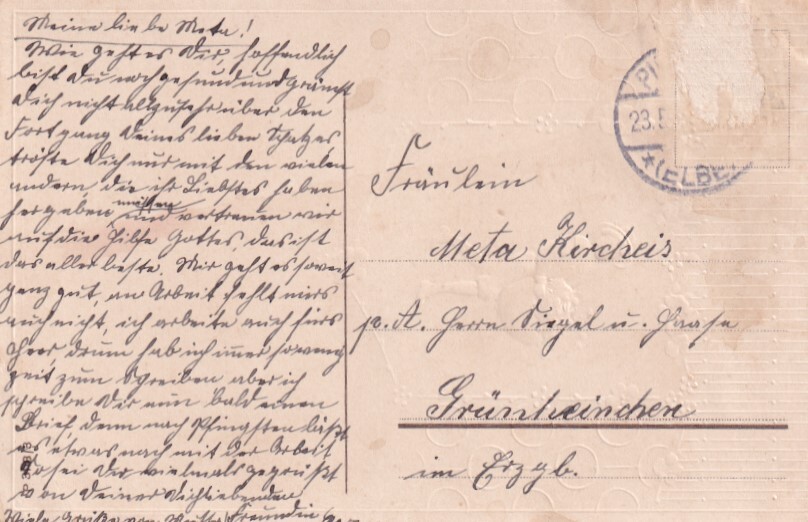 Meine liebe Meta!
Wie geht es Dir, hoffendlich
bist Du noch gesund und grämst
Dich nicht allzusehr über den
Fortgang Deines lieben Schatzes
tröste Dich nur mit den vielen
andern, die ihr Liebstes haben
hergeben müssen und vertrauen wir
auf die Hilfe Gottes, das ist
das aller beste. Mir geht es soweit
ganz gut, an Arbeit fehlt mirs
auch nicht, ich arbeite auch fürs
Heer, drum hab ich imer so wenig
zeit zum Schreiben aber ich
schreibe Dir nun bald einen
Brief, denn nach Pfingsten läßt
es etwas nach mit der Arbeit
So sei Du vielmals gegrüßt
von Deiner Dichliebenden
Freundin
Viele Grüße von Mutter
PI
23.5
(ELBE)
Fräulein
Meta Kircheis
p. A. Herrn Siegel u. Haase
Grünhainchen
im Erzgb.